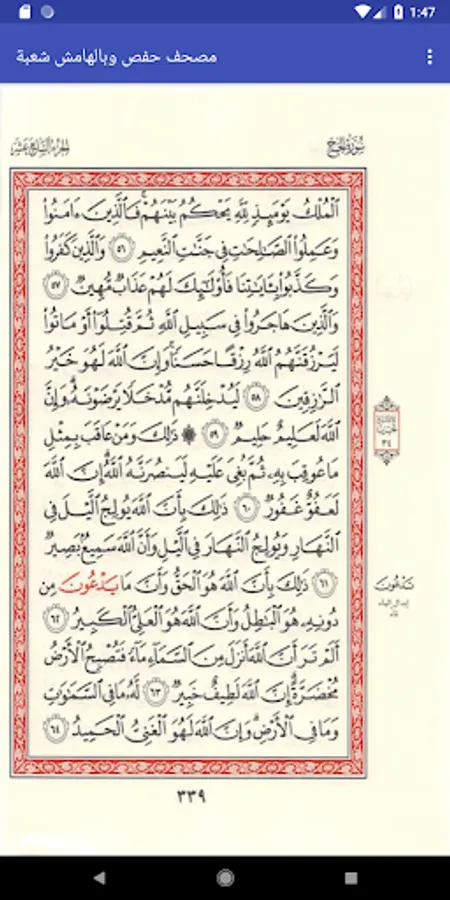 1:47
مصحف حفص وبالهامش شعبة
سُورَةُ الحَجِّ
الجزء السابع عشر
ٱلْمُلْكُ يَوْمَئِذٍ لِّلَّهِ يَحْكُمُ بَيْنَهُمْ ۚ فَٱلَّذِينَ ءَامَنُوا۟
وَعَمِلُوا۟ ٱلصَّـٰلِحَـٰتِ فِى جَنَّـٰتِ ٱلنَّعِيمِ ٥٦ وَٱلَّذِينَ كَفَرُوا۟
وَكَذَّبُوا۟ بِـَٔايَـٰتِنَا فَأُو۟لَـٰٓئِكَ لَهُمْ عَذَابٌ مُّهِينٌ ٥٧
وَٱلَّذِينَ هَاجَرُوا۟ فِى سَبِيلِ ٱللَّهِ ثُمَّ قُتِلُوٓا۟ أَوْ مَاتُوا۟
لَيَرْزُقَنَّهُمُ ٱللَّهُ رِزْقًا حَسَنًا ۚ وَإِنَّ ٱللَّهَ لَهُوَ خَيْرُ
ٱلرَّٰزِقِينَ ٥٨ لَيُدْخِلَنَّهُم مُّدْخَلًا يَرْضَوْنَهُۥ ۗ وَإِنَّ
ٱللَّهَ لَعَلِيمٌ حَلِيمٌ ٥٩ ۞ ذَٰلِكَ وَمَنْ عَاقَبَ بِمِثْلِ
مَا عُوقِبَ بِهِۦ ثُمَّ بُغِىَ عَلَيْهِ لَيَنصُرَنَّهُ ٱللَّهُ ۗ إِنَّ ٱللَّهَ
لَعَفُوٌّ غَفُورٌ ٦٠ ذَٰلِكَ بِأَنَّ ٱللَّهَ يُولِجُ ٱلَّيْلَ فِى
ٱلنَّهَارِ وَيُولِجُ ٱلنَّهَارَ فِى ٱلَّيْلِ وَأَنَّ ٱللَّهَ سَمِيعٌۢ بَصِيرٌ
٦١ ذَٰلِكَ بِأَنَّ ٱللَّهَ هُوَ ٱلْحَقُّ وَأَنَّ مَا يَدْعُونَ مِن
دُونِهِۦ هُوَ ٱلْبَـٰطِلُ وَأَنَّ ٱللَّهَ هُوَ ٱلْعَلِىُّ ٱلْكَبِيرُ ٦٢
أَلَمْ تَرَ أَنَّ ٱللَّهَ أَنزَلَ مِنَ ٱلسَّمَآءِ مَآءً فَتُصْبِحُ ٱلْأَرْضُ
مُخْضَرَّةً ۗ إِنَّ ٱللَّهَ لَطِيفٌ خَبِيرٌ ٦٣ لَّهُۥ مَا فِى ٱلسَّمَـٰوَٰتِ
وَمَا فِى ٱلْأَرْضِ ۗ وَإِنَّ ٱللَّهَ لَهُوَ ٱلْغَنِىُّ ٱلْحَمِيدُ ٦٤
٣٤
تَدْعُونَ
٣٣٩